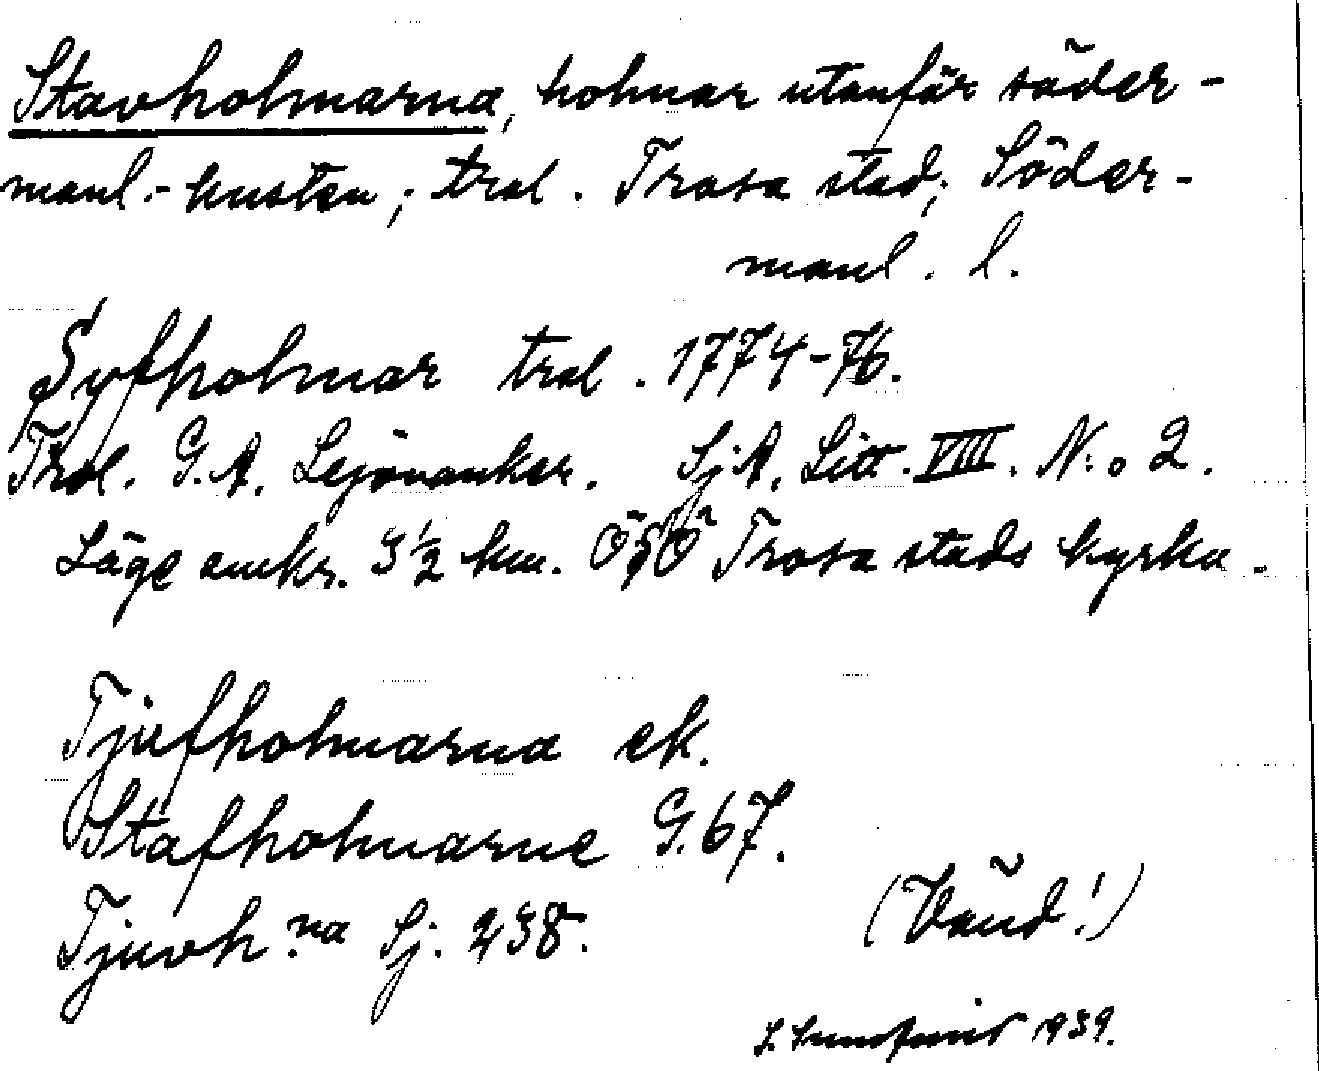 Stavholmarna, holmar utanför söder-
manl.-kusten; trol. Trosa stad; Söder-
manl. l.
Syfholmar trol. 1774-76.
Trol. G. A. Lejonanker. Sj.A. Litt. VIII. N:o 2.
Läge omkr. 3 1/2 km. OSO Trosa stads kyrka.
Tjufholmarna ek.
Stafholmarne G. 67.
Tjuvh:na Sj. 238.
(Vänd!)
1939.